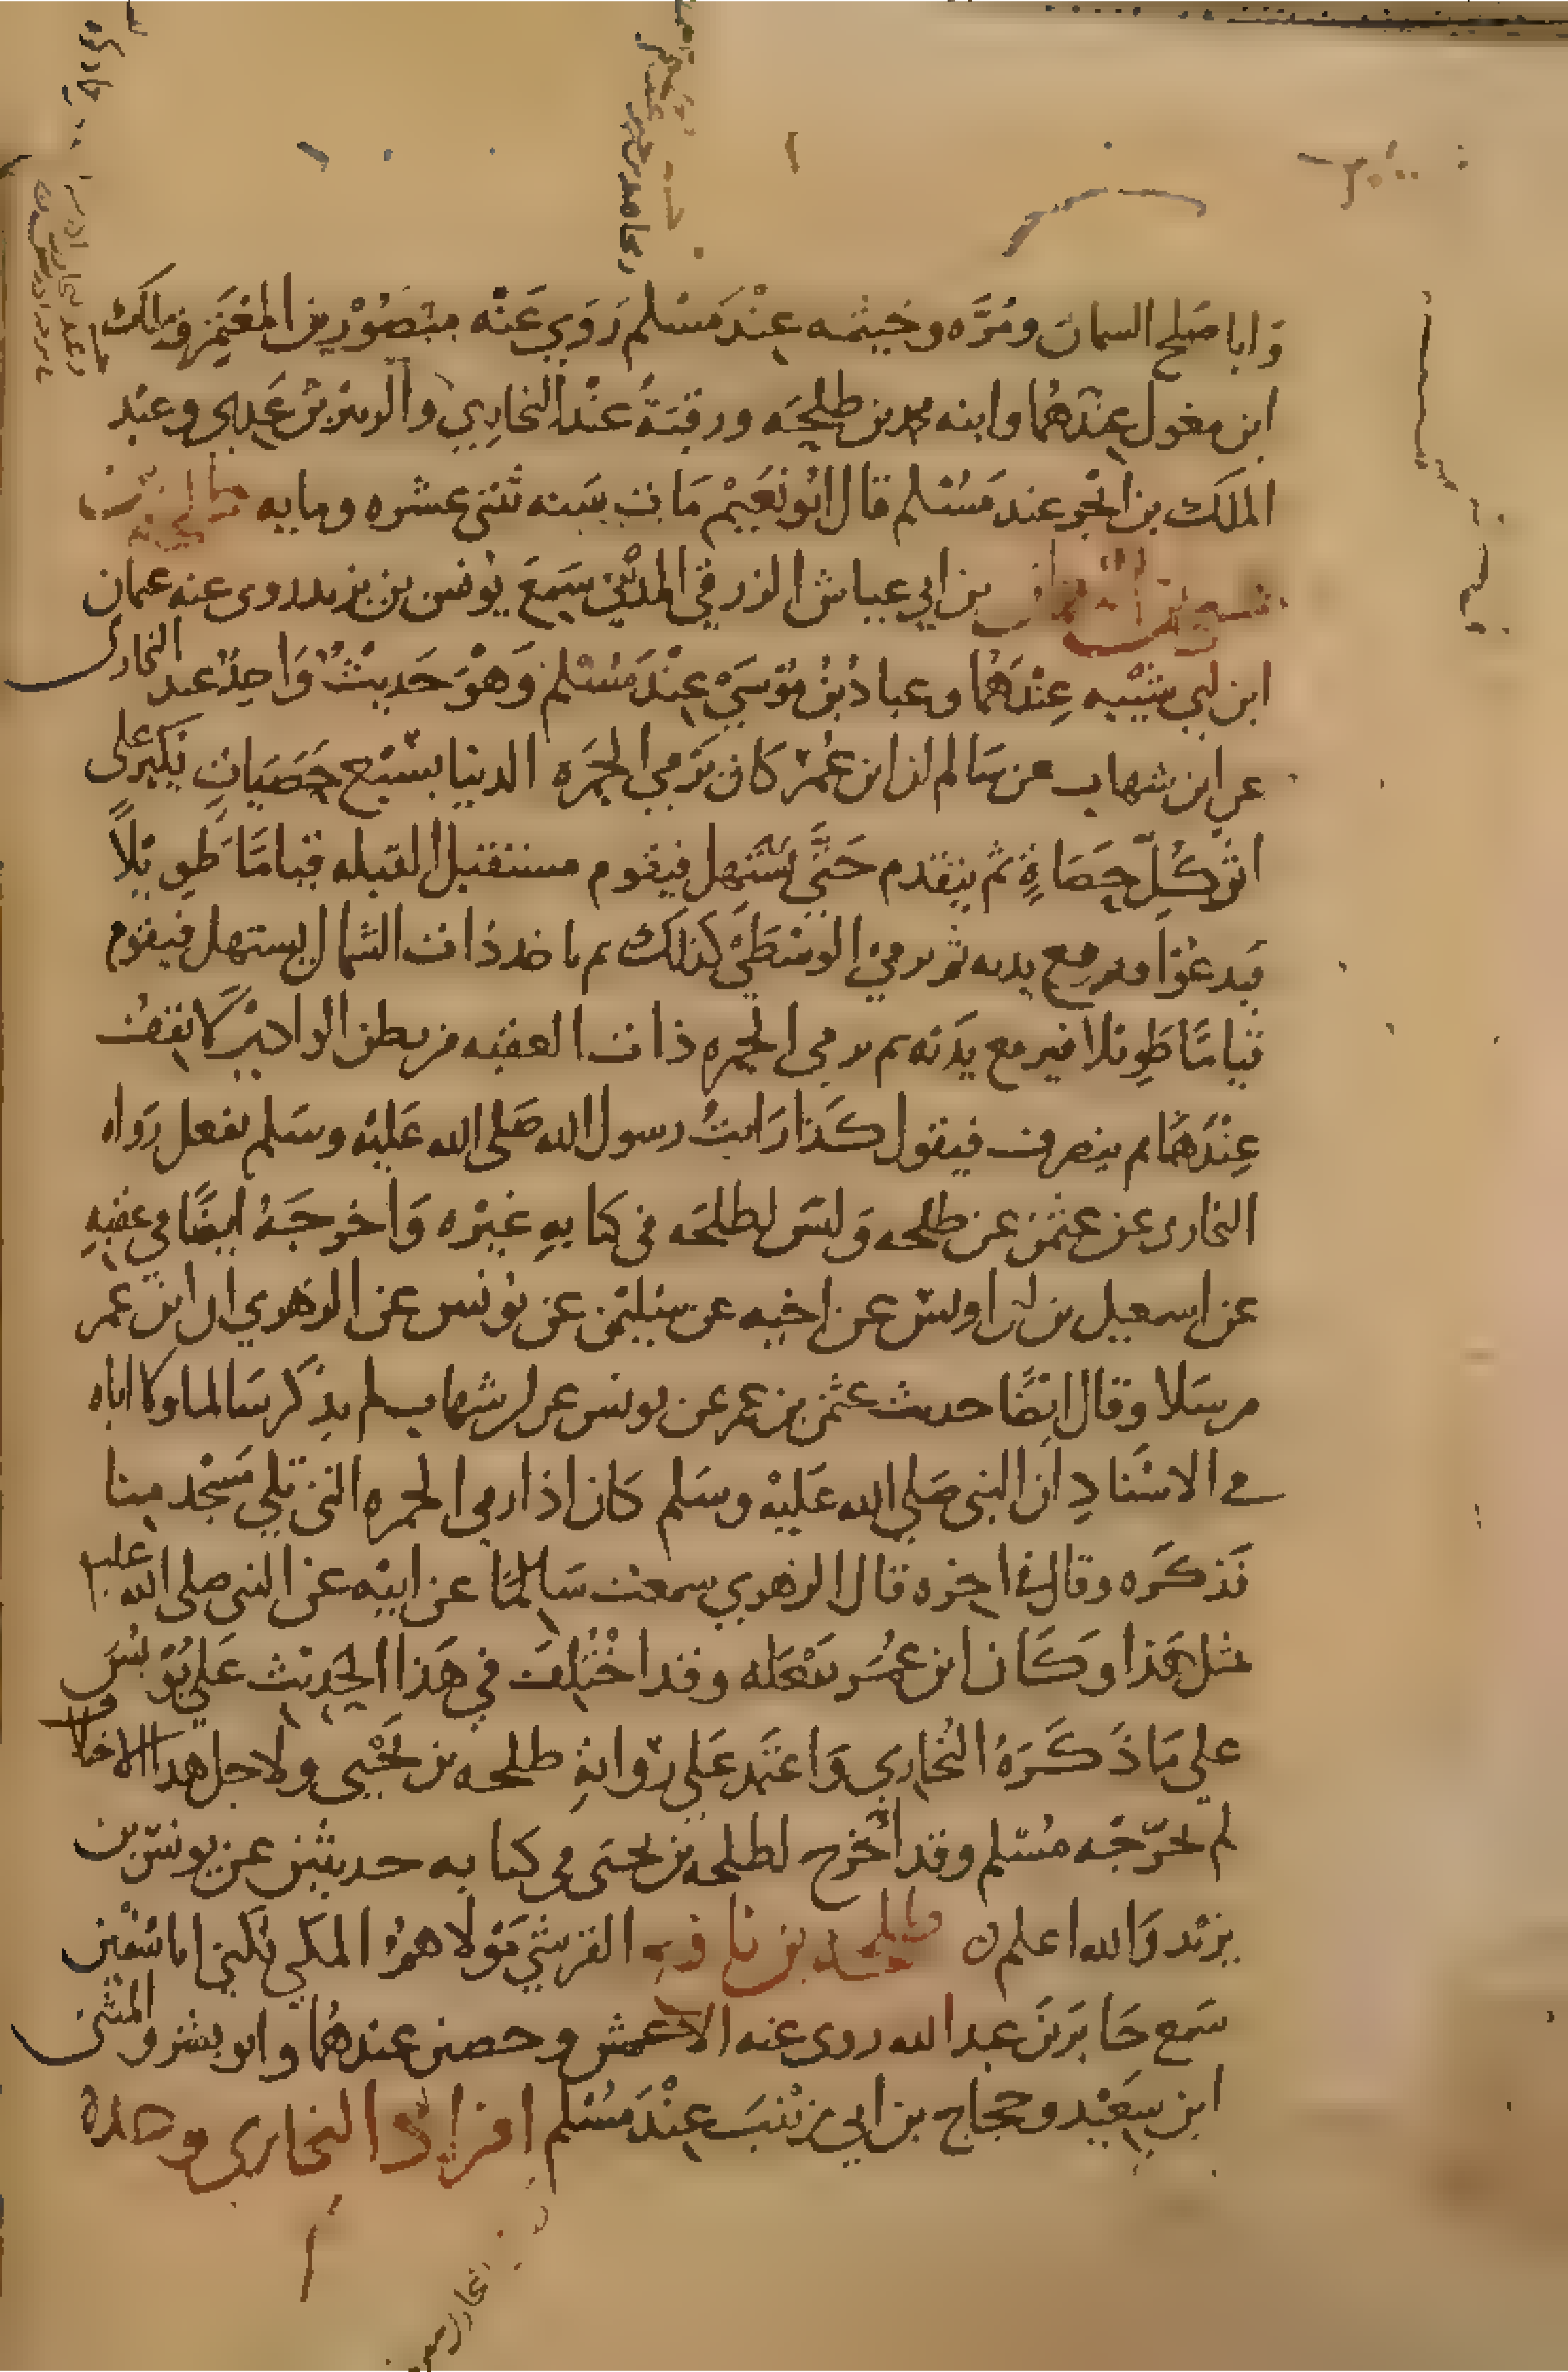 وَابا صَلح السمان ومُرَّه وخيثمه عِنْدَ مَسْلم رَوَي عَنْه منصُوْر بن المعْتَمِر ومالك
ابن مغول عِنْدَهُما وابنه محمد بن طلحَه ورقبَةُ عنْدَ البخارِيي والزبير بن عَدِي وعبْد
الملك بن ابجر عند مَسْلم قال ابُو نعَيْم مَات سَنه ثنتي عشره ومايه طلحة بن
يحيى بن النعمان بن ابي عياش الزرقي المدَني سَمِعَ يُونس بن يزيد روى عنه عثمان
ابن ابي شيْبه عِنْدَهُما وعبادُ بنُ مُوْسَيْ عِنْدَ مَسْلم وَهْوَ حَديْثُ وَاحِدُ عند البخارى
عن ابن شهاب عن سَالم ان ابن عُمرْ كَان يَرْمِي الجمَره الدنيا بسَبْع حَصَيَاتِ يكَبّر على
اثر كُلِّ حَصَاةٍ ثم يتقدم حَتَّى يُسْهِل فيقوم مستقبل القبله قيامًا طَوِيلاً
يَدعُوْا ويرفع يديه ثم يرمي الوسْطَيْ كذلك ثم ياخذ ذات الشمال يستهل فيقوم
قيامًا طَوِيلا فيرفع يَدَيْه ثم يرمي الجمره ذات العقبه من بطن الوادي وَلا يَقِفُ
عِنْدَهَا ثم ينصرف فيقول كَذا رَايتُ رسول الله صَلى الله عَليْه وسَلم يفعل رَوَاه
البخارى عن عثمن عن طلحه وَليسَ لطلحَه في كتابِهِ غيْرَه وَاخرجَهُ ايضًا في عقبهِ
عن اسمعيل بن ابي اويْس عن اخيه عن سليْمن عن يونس عن الزهري ان ابن عمر
مرسَلا وقال ايضًا حديث عثمن بن عمر عن يونس عن ابن شهاب لم يذكر سَالما ولا اباه
في الاسْنادِ ان النبي صَلي الله عَليْه وسَلم كَان اذا رمي الجمره التي تلي مَسْجد مِنا
فَذكَره وقال في اخره قال الزهري سمعت سَالمًا عن ابيْه عن النبي صلى الله عليه
مثل هَذا وَكَان ابن عُمَر يَفْعَله وقد اخْتُلِفَ في هَذا الحَدِيْث عَلي يُوْنُسَ
علي مَا ذَكَرَهُ البُخَارِي وَاعْتَمَد عَلي رّوَايةِ طلحه بن يَحْيي ولاجل هذا الاختلاف
لم يخرّجْه مُسْلم وقد اخْرج لطلحه بن يحيَى في كتابه حديثين عن يونس بن
يزيْد وَالله اعلم ن طلحه بن نافع القرشيّ مَوْلاهمُ المكي يُكنيَ ابا سُفْين
سَمع جَابرَ بنَ عبد الله روى عنه الاعمش وحصين عندهُما وابو بشر والمثنى
ابن سَعَيْد وحجاج بن ابي زيْنبَ عِنْدَ مُسْلم افراد البخارى وحده